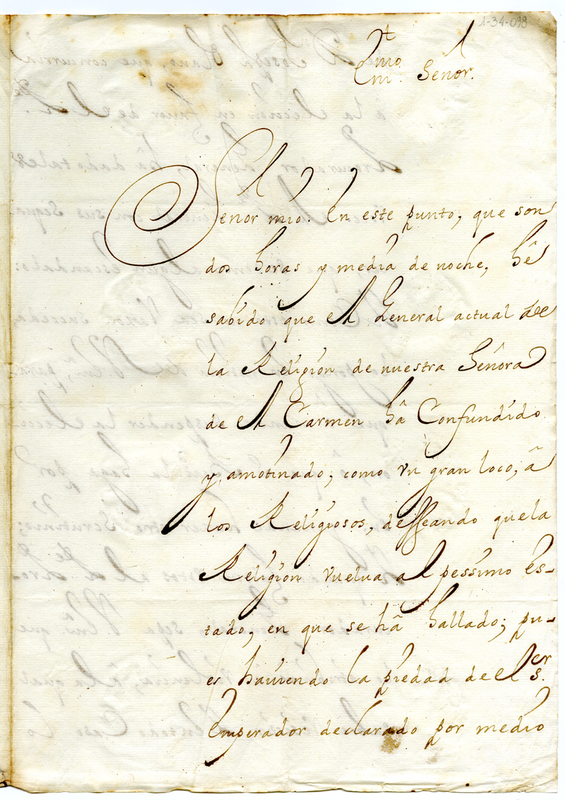 1-34-098
Em.mo Señor.
Señor mio En este punto, que son
dos horas y media de noche, hê
sabido que el General actual de
la Religión de nuestra Señora
de el Carmen hâ Confundido
y, amotinado, como vn gran loco, â
los Religiosos, desseando que la
Religion vuelua al pessimo es-
tado, en que se hâ hallado; pu-
es hauiendo la piedad de el s.or
Emperador declarado por medio